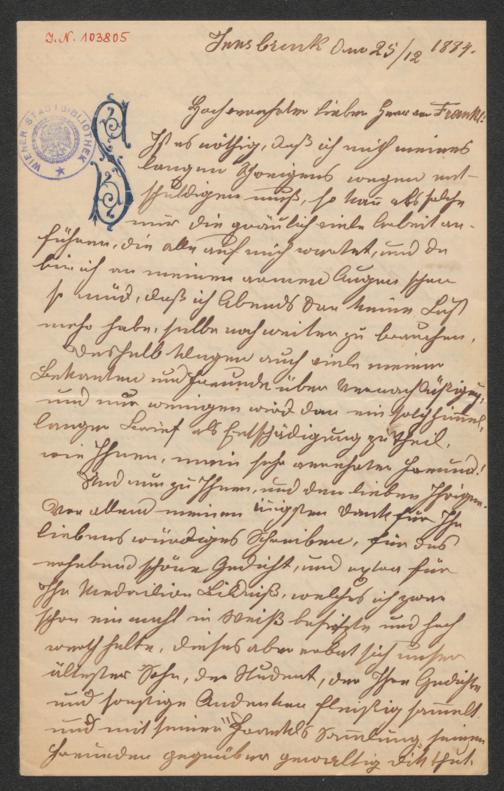 J.N. 103805
Innsbruck am 25/12 1884.
WIENER STADTBIBLIOTHEK
Hochverehrter lieber Herr von Frankl!
Ist es nöthig, daß ich mich meines
langen Schweigens wegen ent-
schuldigen muß, so kann als solche
nur die gräulich viele Arbeit an-
führen, die alle auf mich wartet, und da
bin ich an meinen armen Augen schon
so müd, daß ich Abends dan keine Lust
mehr habe, selbe noch weiter zu brauchen.
Deshalb klagen auch viele meiner
Bekanten und Freunde über Vernachläßigung,
und nur wenigen wird dan ein solch himmel-
langer Brief als Entschädigung zu Theil,
wie Ihnen, mein sehr verehrter Freund!
Und nun zu Ihnen, und den lieben Ihrigen.
Vor allem meinen innigsten Dank für Ihr
liebenswürdiges Schreiben, für das
erhebend schöne Gedicht, und extra für
Ihr Medaillon Bildniß, welches ich zwar
schon einmahl in Weiß besitze und hoch
werth halte, dieses aber erbat sich unser
ältester Sohn, der Student, der Ihre Gedichte
und sonstige Andenken fleißig samelt
und mit seiner "Frankls Samlung" seinen
Freunden gegenüber gewaltig dick thut.